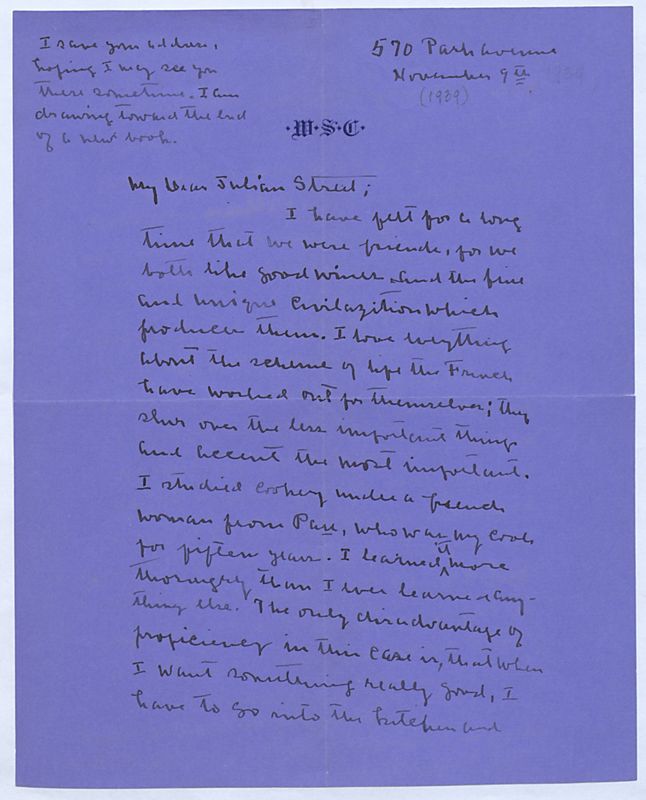 I save your address,
hoping I may see you
there sometime. I am
drawing toward the end
of a new book.
570 Park avenue
November 9th 1939
(1939)
·W·S·C·
My Dear Julian Street;
I have felt for a long
time that we were friends, for we
both like good wines and the fine
and unique civilazition which
produces them. I love everything
about the scheme of life the French
have worked out for themselves; they
slur over the less important things
and accent the most important.
I studied cookery under a french
woman from Pau, who was my cook
for fifteen years. I learned it more
thoroughly than I ever learned any-
thing else. The only disadvantage of
proficiency in this case is, that when
I want something really good, I
have to go into the kitchen and